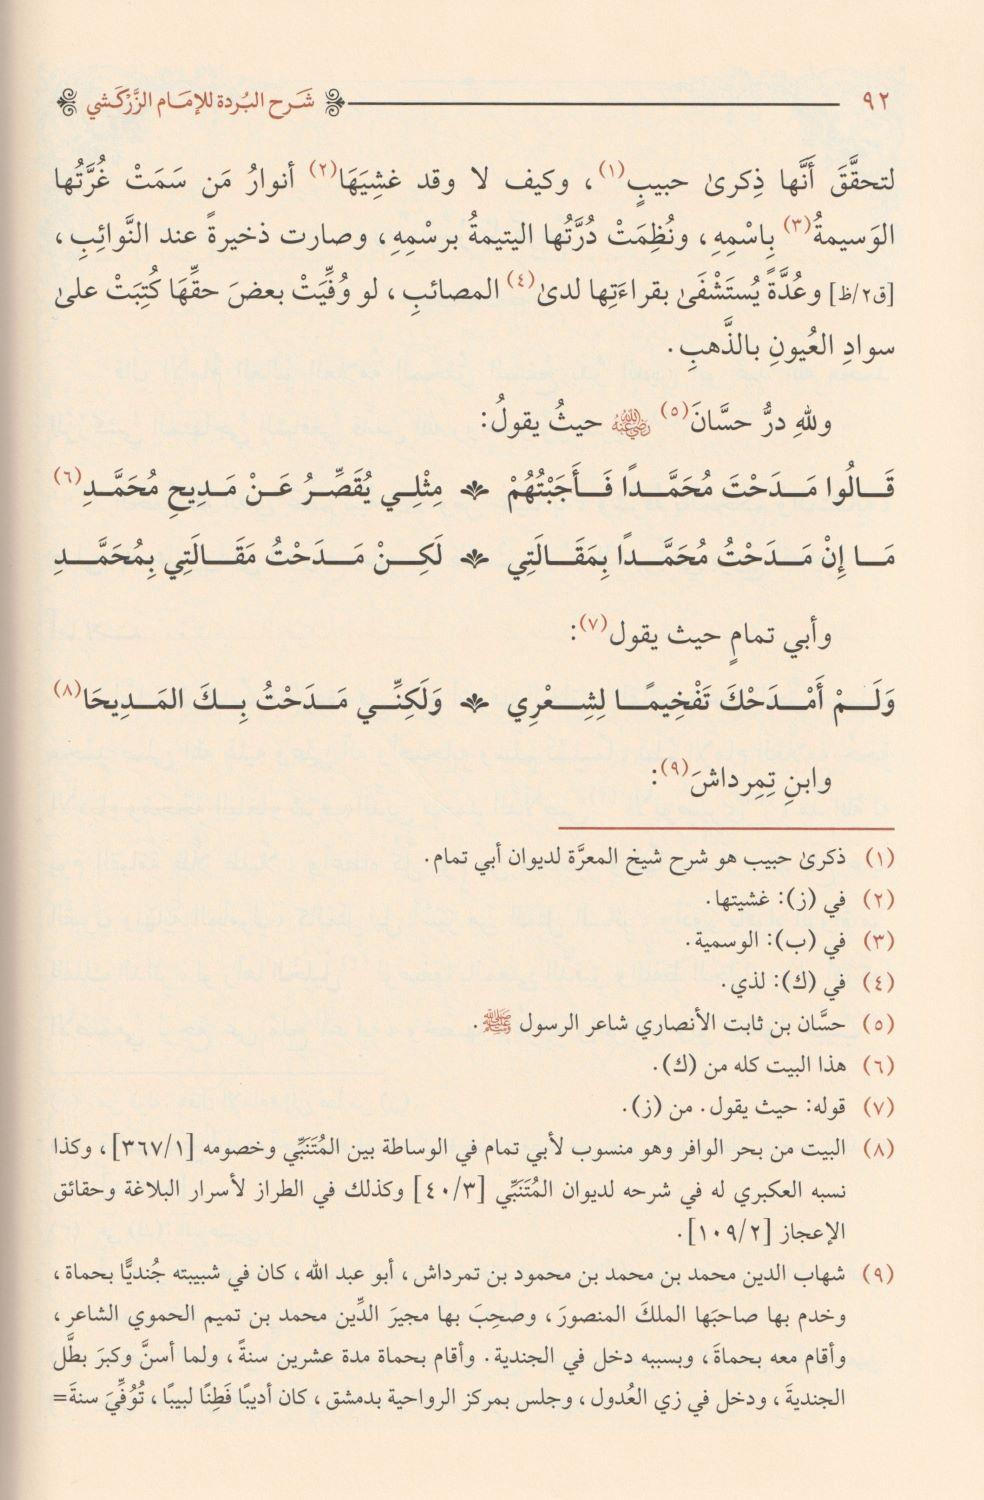 ٩٢ شَرح البُردة للإمَام الزَّرْكَشي
لتحقَّقَ أَنَّها ذِكرىٰ حبيبٍ(١)، وكيف لا وقد غشِيَهَا(٢) أنوارُ مَن سَمَتْ غُرَّتُها
الوَسيمةُ(٣) بِاسْمِهِ، ونُظِمَتْ دُرَّتُها اليتيمةُ برسْمِهِ، وصارت ذخيرةً عند النَّوائِبِ،
[ق٢/ظ] وعُدَّةً يُستَشْفَىٰ بقراءَتِها لدىٰ(٤) المصائبِ، لو وُفِّيَتْ بعضَ حقِّهَا كُتِبَتْ علىٰ
سوادِ العُيونِ بالذَّهبِ.
وللهِ درُّ حسَّانَ(٥) رضي الله عنه حيثُ يقولُ:
قَالُوا مَدَحْتَ مُحَمَّداً فَأَجَبْتُهُمْ مِثْلِي يُقَصِّرُ عَنْ مَدِيحِ مُحَمَّدِ(٦)
مَا إِنْ مَدَحْتُ مُحَمَّداً بِمَقَالَتِي لَكِنْ مَدَحْتُ مَقَالَتِي بِمُحَمَّدِ
وأبي تمامٍ حيث يقول(٧):
وَلَمْ أَمْدَحْكَ تَفْخِيمًا لِشِعْرِي وَلَكِنِّي مَدَحْتُ بِكَ المَدِيحَا(٨)
وابنِ تِمِرداشَ(٩):
(١) ذكرىٰ حبيب هو شرح شيخ المعرَّة لديوان أبي تمام.
(٢) في (ز): غشيتها.
(٣) في (ب): الوسمية.
(٤) في (ك): لذي.
(٥) حسَّان بن ثابت الأنصاري شاعر الرسول ﷺ.
(٦) هذا البيت كله من (ك).
(٧) قوله: حيث يقول. من (ز).
(٨) البيت من بحر الوافر وهو منسوب لأبي تمام في الوساطة بين المُتَنَبِّي وخصومه [٣٦٧/١]، وكذا
نسبه العكبري له في شرحه لديوان المُتَنَبِّي [٤٠/٣] وكذلك في الطراز لأسرار البلاغة وحقائق
الإعجاز [١٠٩/٢].
(٩) شهاب الدين محمد بن محمد بن محمود بن تمرداش، أبو عبد الله، كان في شبيبته جُنديًّا بحماة،
وخدم بها صاحبَها الملكَ المنصورَ، وصحِبَ بها مجيرَ الدِّين محمد بن تميم الحموي الشاعر،
وأقام معه بحماةَ، وبسببه دخل في الجندية. وأقام بحماة مدة عشرين سنةً، ولما أسنَّ وكبرَ بطَّل
الجنديةَ، ودخل في زي العُدول، وجلس بمركز الرواحية بدمشق، كان أديبًا فَطِنًا لبيبًا، تُوُفِّيَ سنةَ=